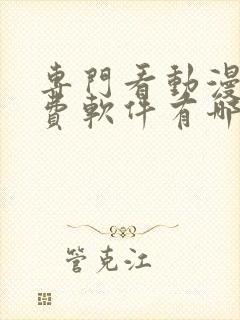 專門看動漫
費軟件有哪
管克江